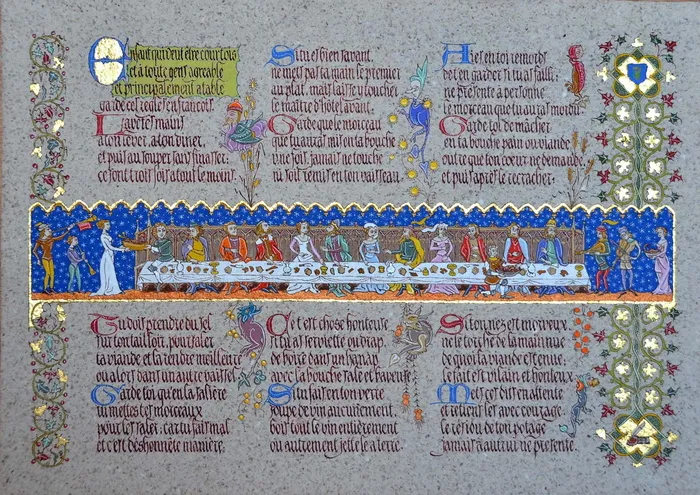 Enfant qui veut être courtois
et à toute gens agréable
et principalement à table
garde ces règles en françois
Lave tes mains
à ton lever, à ton dîner,
et puis au souper sans finasser;
ce sont trois fois à tout le moins.
Si tu es bien savant,
ne mets pas ta main le premier
au plat, mais laisse y toucher
le maître d'hôtel avant.
Garde que le morceau
que tu auras mis en ta bouche
une fois, jamais ne touche
ni soit remis en ton vaisseau.
Aies en toi remords
de t'en garder si tu as failli;
ne présente à personne
le morceau que tu auras mordu.
Garde toi de mâcher
en ta bouche pain ou viande
outre que ton coeur ne demande,
et puis après le recracher.
Tu dois prendre du sel
sur ton tailloir, pour saler
ta viande et la rendre meilleure
ou alors dans un autre vaissel.
Garde toi qu'en la salière
tu mettes tes morceaux
pour les saler: car tu fais mal
et c'est déshonnête manière.
C'est chose honteuse
si tu as serviette ou drap
de boire dans un hanap
avec la bouche sale et baveuse
Si tu fais en ton verre
soupe de vin aucunement,
bois tout le vin entièrement
ou autrement jette le à terre.
Si ton nez est morveux
ne le torche de la main nue
de quoi ta viande est tenue;
le fait est vilain et honteux.
Mets ces dits en attente
et retiens les avec courage.
le résidu de ton potage
jamais à autrui ne présente.